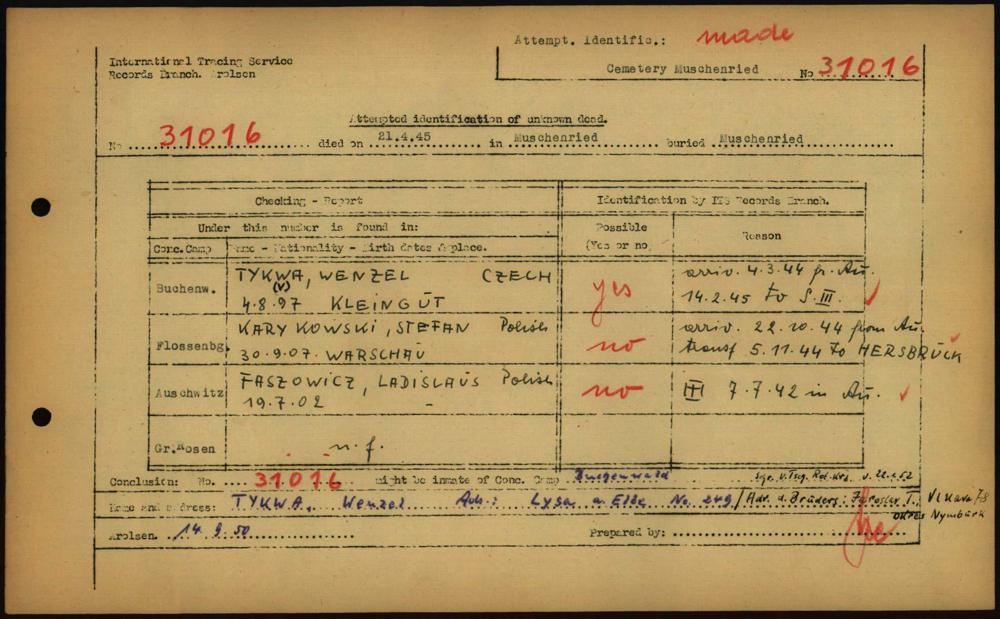 Attempt. Identific.: made
International Tracing Service
Records Branch. Arolsen
Cemetery Muschenried No 31016
Attempted identification of unknown dead.
No 31016 died on 21.4.45 in Muschenried buried Muschenried
Checking - Report Identification by ITS Records Branch.
Under this number is found in: Possible Reason
Conc.Camp Name - Nationality - Birth dates & place. (Yes or no)
Buchenw. TYKWA, WENZEL CZECH yes arriv. 4.3.44 fr. Au.
(V)
4.8.97 KLEINGUT 14.2.45 to S.III.
Flossenbg. KARYKOWSKI, STEFAN Polish no arriv. 22.10.44 from Au.
30.9.07. WARSCHAU transf 5.11.44 to HERSBRUCK
Auschwitz FASZOWICZ, LADISLAUS Polish no 7.7.42 in Au.
19.7.02 -
Gr.Rosen n.f.
Conclusion: No. 31016 might be inmate of Conc. Camp Buchenwald
Name and address: TYKWA, Wenzel Adr.: Lysa a. Elbe No. 249 / Adr. d. Bruders: Jaroslav T., Vlkava 78
okres Nymburk
Arolsen. 14.9.50 Prepared by: